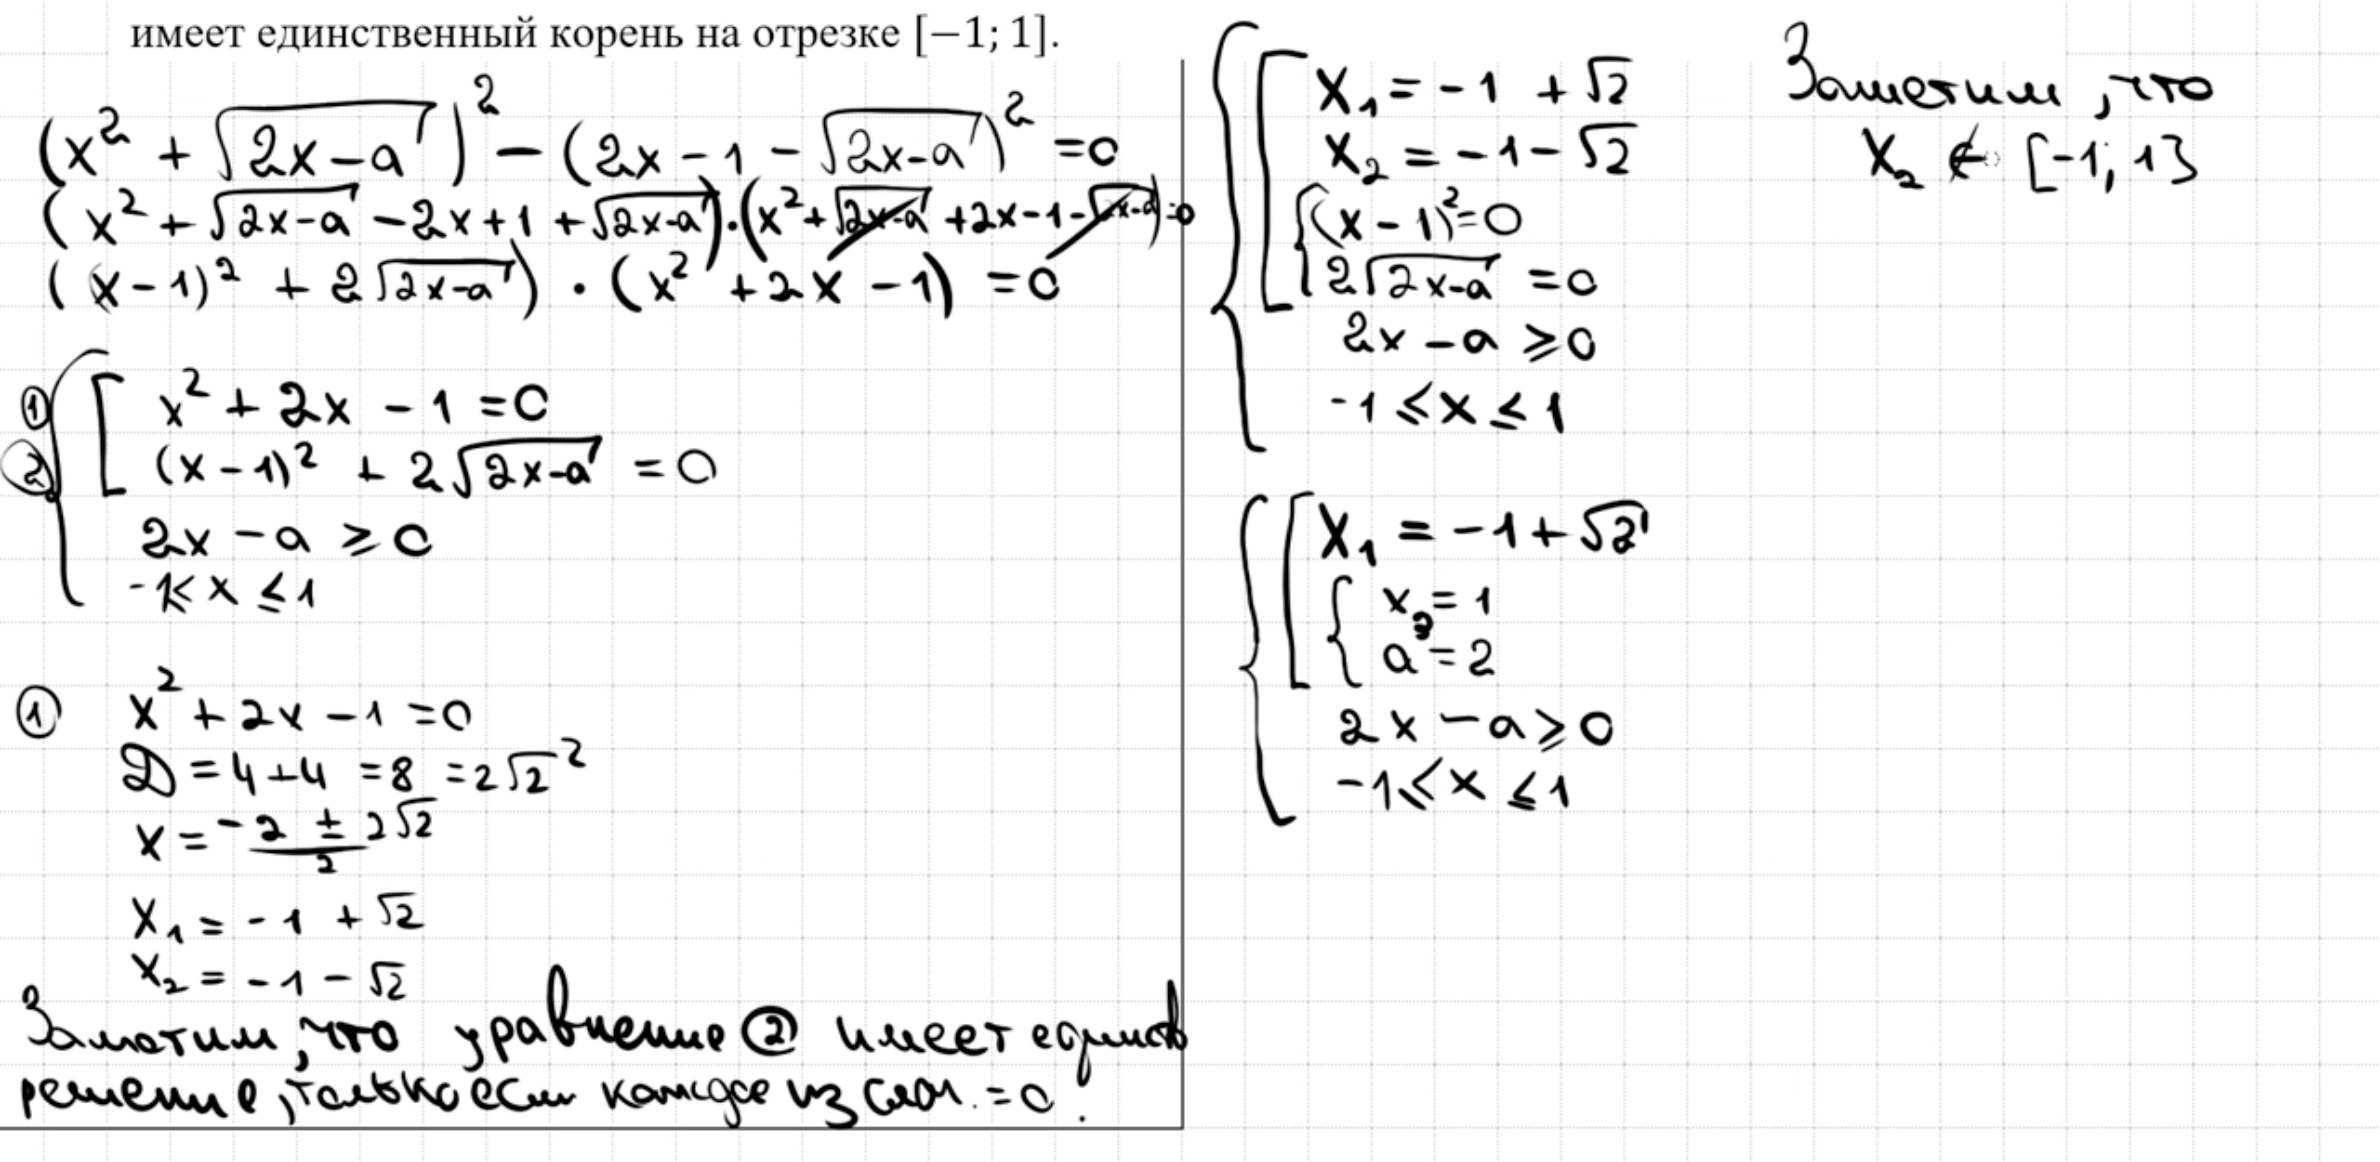 имеет единственный корень на отрезке [−1; 1].
(x² + √(2x−a))² − (2x − 1 − √(2x−a))² = 0
(x² + √(2x−a) − 2x + 1 + √(2x−a)) · (x² + √(2x−a) + 2x − 1 − √(2x−a)) = 0
((x−1)² + 2√(2x−a)) · (x² + 2x − 1) = 0
① x² + 2x − 1 = 0
② (x−1)² + 2√(2x−a) = 0
2x − a ≥ 0
−1 ≤ x ≤ 1
① x² + 2x − 1 = 0
D = 4 + 4 = 8 = 2√2²
x = (−2 ± 2√2)/2
x₁ = −1 + √2
x₂ = −1 − √2
Заметим, что уравнение ② имеет единств
решение, только если каждое из слаг. = 0.
x₁ = −1 + √2
x₂ = −1 − √2
(x − 1)² = 0
2√(2x−a) = 0
2x − a ≥ 0
−1 ≤ x ≤ 1
Заметим, что
x₂ ∉ [−1; 1]
x₁ = −1 + √2
x₃ = 1
a = 2
2x − a ≥ 0
−1 ≤ x ≤ 1